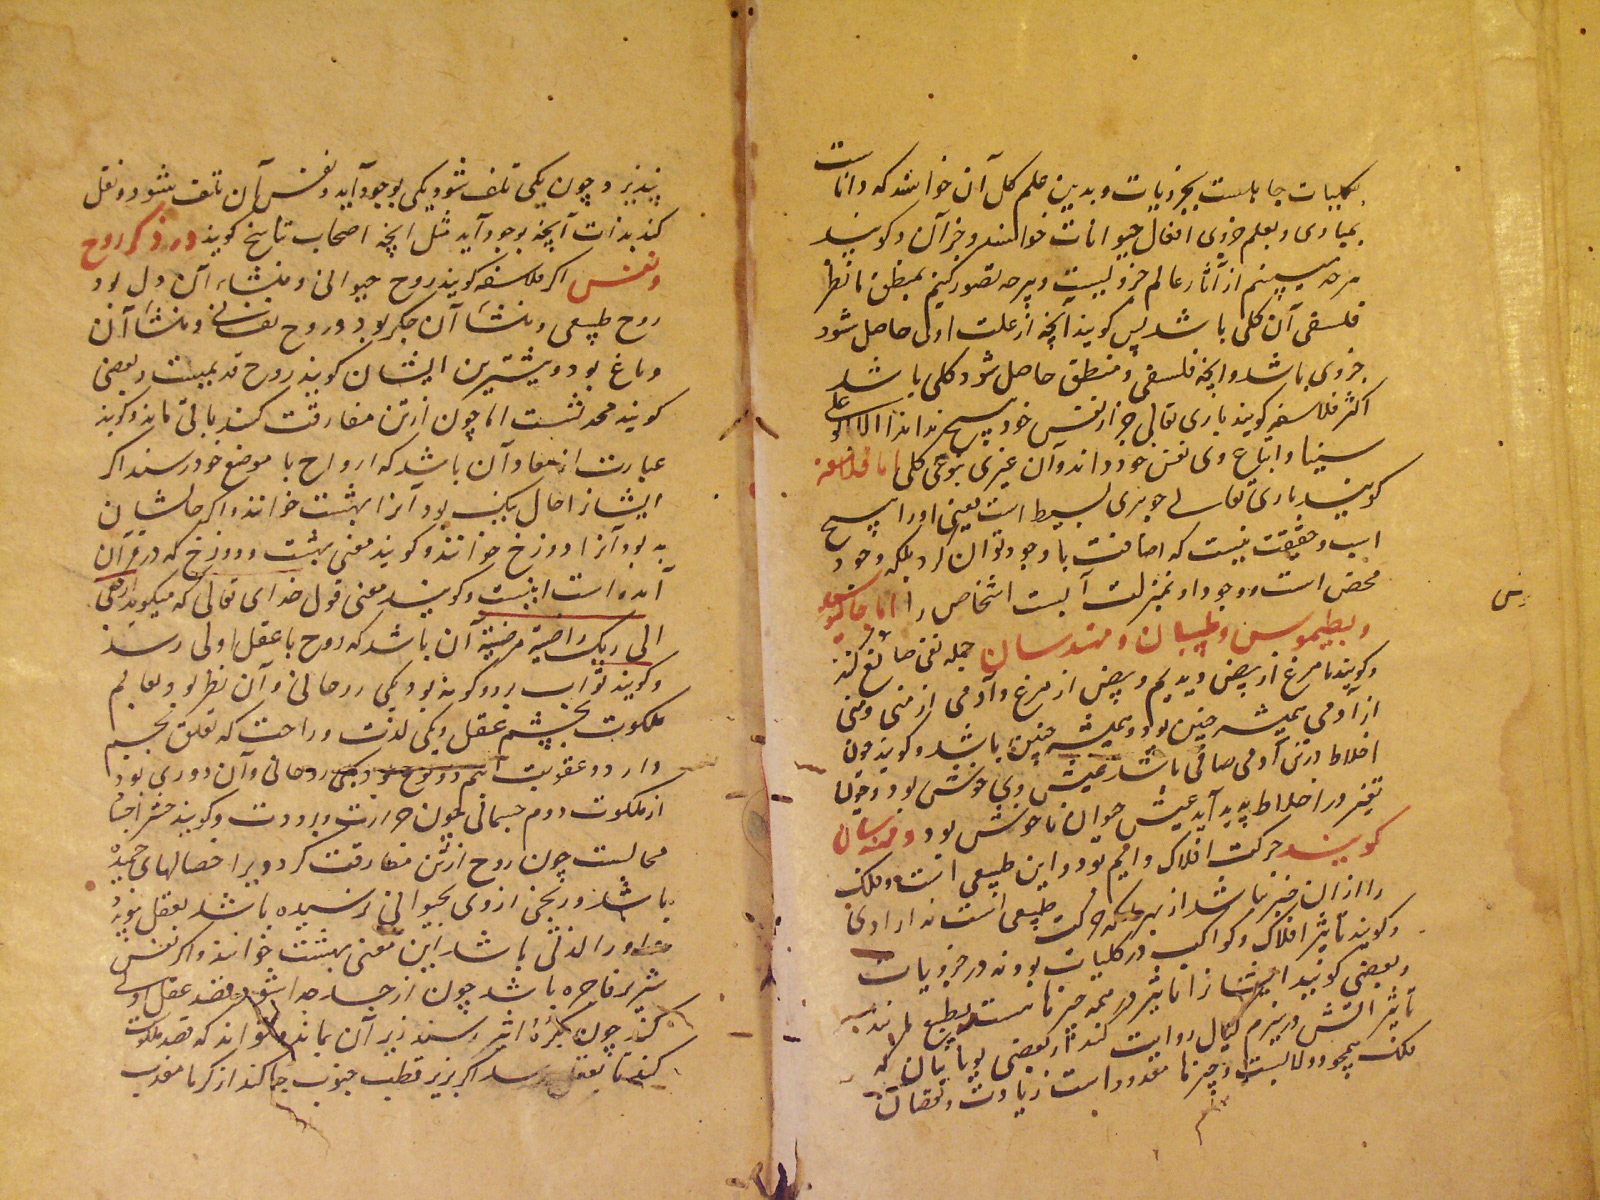 بکلیات جاهلست بجزویات و بدین علم کل آن خواهند که داناست
بمبادی و بعلم جزوی افعال حیوانات خواهند و جز آن و کویند
هرچه میبینیم از آثار عالم جزویست و هرچه تصور کنیم بمنطق تا نظر
فلسفی آن کلی باشد پس کویند آنچه از علت اولی حاصل شود
جزوی باشد و آنچه فلسفی و منطق حاصل شود کلی باشد
اکثر فلاسفه کویند باری تعالی جز از نفس خود هیچ نداند الا ابو علی
سینا و اتباع وی نفس خود داند و آن غیری بنوعی کلی اما فلاسفه
کویند باری تعالی جوهری بسیط است یعنی او را هیچ
اسب و حقیقت نیست که اضافت با وجود توان کرد بلکه وجود
محض است و وجود او بمنزلت آبست اشخاص را اما جالینوس
و بطلیموس و طبیبان و مهندسان جمله نفی صانع کنند
و کویند ما مرغ از بیض دیدیم و بیض از مرغ و آدمی از منی و منی
از آدمی همیشه چنین بود و همیشه چنین باشد و کویند چون
اخلاط در تن آدمی صافی باشد عیش وی خوش بود و چون
تغیر در اخلاط پدید آید عیش حیوان ناخوش بود و مهندسان
کویند حرکت افلاک دایم بود و این طبیعی است و فلک
را از آن خبر نباشد از بهر آنکه حرکت طبیعی است نه ارادی
و کویند تاثیر افلاک و کواکب در کلیات بود نه در جزویات
و بعضی کویند ایشانرا تاثیر در همه چیزها هست بطبع مانند
تاثیر آتش در هیزم روایت کنند از بعضی یونانیان که
فلک همچو دولابست و چیزها معدود است زیادت و نقصان
س
نپذیرد چون یکی تلف شود یکی بوجود آید و نفس آن تلف شود و نقل
کند بذات آنچه بوجود آید مثل آنچه اصحاب تناسخ کویند در ذکر روح
و نفس اکر فلاسفه کویند روح حیوانی و منشاء آن دل بود
روح طبیعی و منشاء آن جکر بود و روح نفسانی و منشاء آن
دماغ بود و بیشترین ایشان کویند روح قدیمست و بعضی
کویند محدثست اما چون از تن مفارقت کند باقی ماند و کویند
عبارت از معاد آن باشد که ارواح با موضع خود رسند اکر
ایشانرا حال نیک بود آنرا بهشت خوانند و اکر حالشان
بد بود آنرا دوزخ خوانند و کویند معنی بهشت و دوزخ که در قرآن
آمده است اینست و کویند معنی قول خدای تعالی که میکوید ارجعی
الی ربک راضیة مرضیة آن باشد که روح با عقل اولی رسد
و کویند ثواب بر دو کونه بود یکی روحانی و آن نظر بود بعالم
ملکوت بچشم عقل و یکی لذت و راحت که تعلق بجسم
دارد و عقوبت هم دو نوع بود یکی روحانی و آن دوری بود
از ملکوت دوم جسمانی چون حرارت و برودت و کویند حشر اجساد
محالست چون روح از تن مفارقت کرد و ویرا خصالهای حمیده
باشد و رنجی از وی بحیوانی نرسیده باشد بعقل پیوندد
و او را لذتی باشد این معنی بهشت خوانند و اکر نفس
شریر فاجره باشد چون از جسد جدا شود و قصد عقل اولی
کند چون بکره اثیر رسد زیر آن بماند و نتواند که قصد ملکوت
کند تا بعقل رسد اکر بزیر قطب جنوب جا کند از کرما معذب